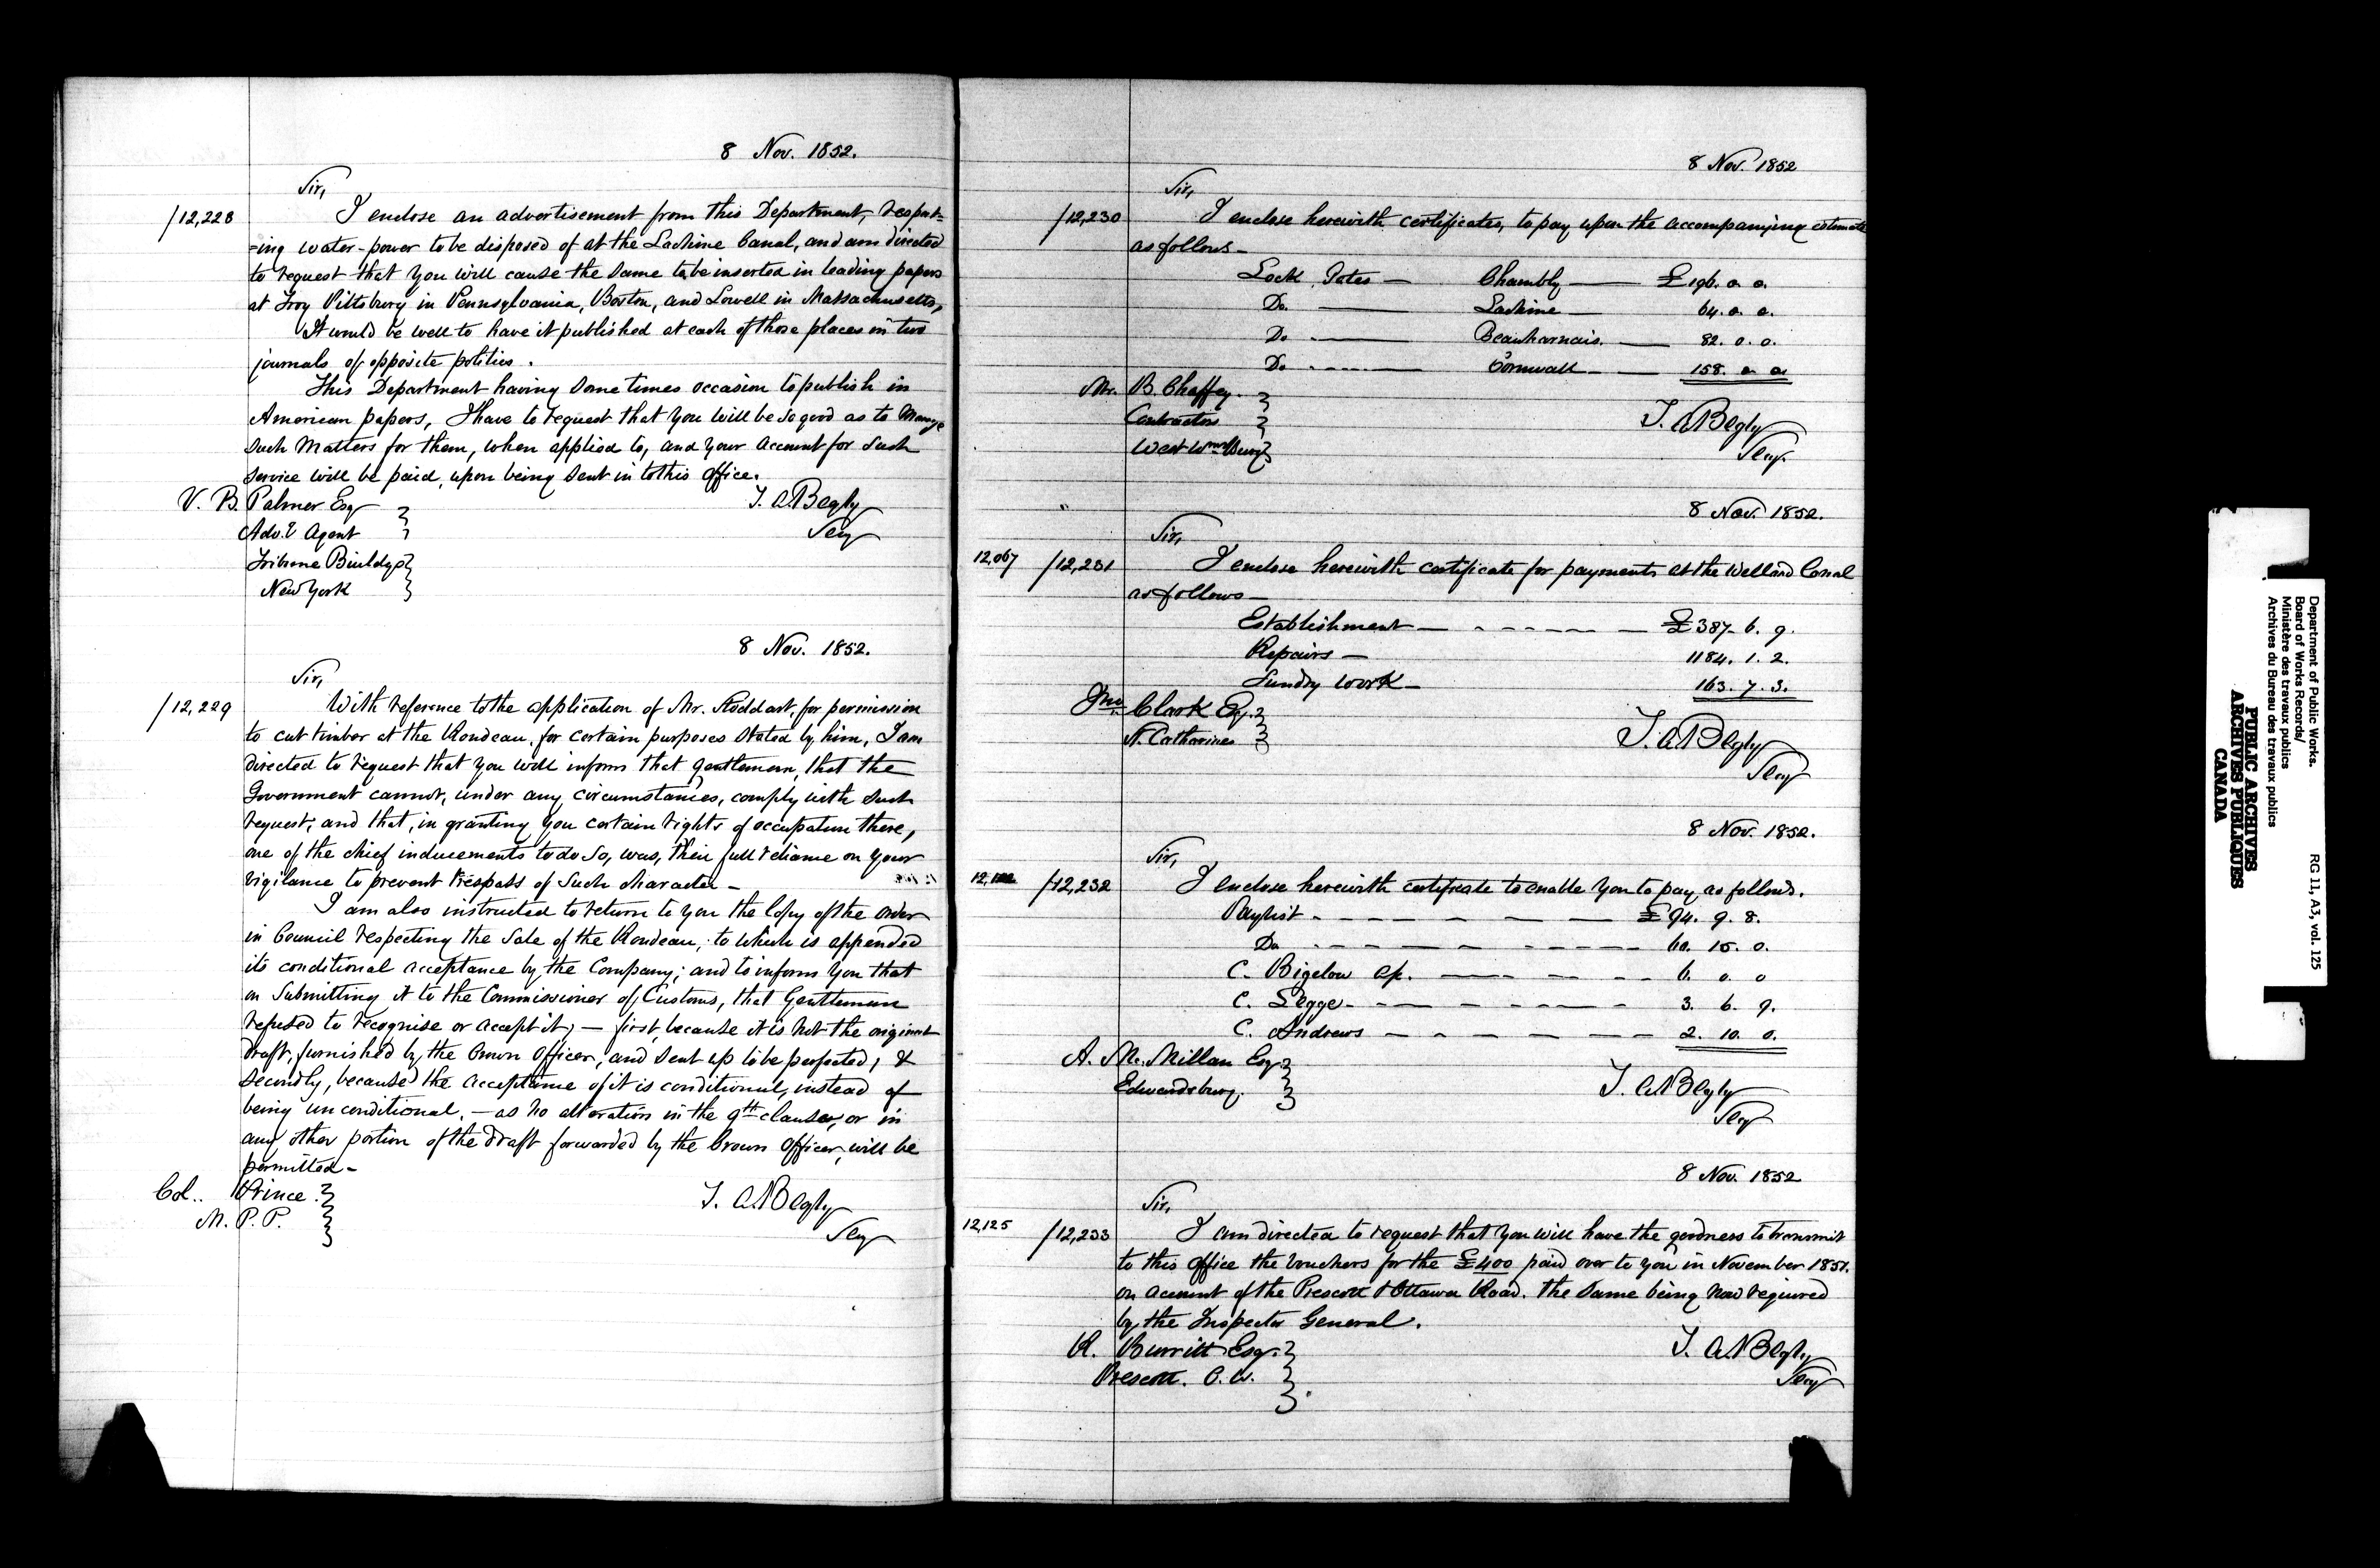 8 Nov. 1852.
Sir,
/12,228 I enclose an advertisement from this Department, respect=
=ing water-power to be disposed of at the Lachine Canal, and am directed
to request that you will cause the same to be inserted in leading papers
at Troy Pittsburg in Pennsylvania, Boston, and Lowell in Massachusetts,
It would be well to have it published at each of those places in two
journals of opposite politics.
This Department having some times occasion to publish in
American papers, I have to request that you will be so good as to manage
such matters for them, when applied to, and your account for such
service will be paid, upon being sent in to this Office.
V. B. Palmer Esq
T. A. Begly
Adv.g Agent
Secy
Tribune Buildgs
New York
8 Nov. 1852.
Sir,
/12,229 With reference to the application of Mr. Stoddart, for permission
to cut timber at the Rondeau, for certain purposes stated by him, I am
directed to request that you will inform that gentleman, that the
Government cannot, under any circumstances, comply with such
request; and that, in granting you certain rights of occupation there,
one of the chief inducements to do so, was, their full reliance on your
vigilance to prevent trespass of such character -
I am also instructed to return to you the Copy of the Order
in Council respecting the sale of the Rondeau, to which is appended
its conditional acceptance by the Company; and to inform you that
on submitting it to the Commissioner of Customs, that Gentleman
refused to recognise or accept it; - first, because it is not the original
draft, furnished by the Crown Officer, and sent up to be perfected; &
secondly, because the acceptance of it is conditional, instead of
being unconditional. - as no alteration in the 9th clause, or in
any other portion of the draft forwarded by the Crown Officer, will be
permitted -
Col. Prince
T. A. Begly
M. P. P.
Secy
8 Nov. 1852
Sir,
/12,230 I enclose herewith certificates, to pay upon the accompanying estimate
as follows -
Lock Gates - Chambly - £196. 0. 0.
Do. - Lachine - 64. 0. 0.
Do - Beauharnais. - 82. 0. 0.
Do - Cornwall - 158. 0. 0.
Mr. B. Chaffey
Contractor
T. A. Begly
West Wmsburg
Secy.
8 Nov. 1852.
Sir,
12,067 /12,231 I enclose herewith certificate for payments at the Welland Canal
as follows -
Establishment - £387. 6. 9.
Repairs - 1184. 1. 2.
Sundry work - 163. 7. 3.
Jno. Clark Esq.
St. Catharines
T. A. Begly
Secy
8 Nov. 1852.
Sir,
/12,232 I enclose herewith certificate to enable you to pay as follows.
Paylist - £94. 9. 8.
Do - 15. 0.
C. Bigelow - 6. 0. 0
C. Legge - 3. 6. 9.
C. Andrews - 2. 10. 0.
A. McMillan Esq
Edwardsburg.
T. A. Begly
Secy
8 Nov. 1852
Sir,
12,125 /12,233 I am directed to request that you will have the goodness to transmit
to this Office the vouchers for the £400 paid over to you in November 1851.
on account of the Prescott & Ottawa Road. the same being now required
by the Inspector General.
R. Burritt Esq.
T. A. Begly
Prescott. C. W.
Secy
Department of Public Works. RG 11, A3, vol. 125
Board of Works Records/
Ministère des travaux publics
Archives du Bureau des travaux publics
PUBLIC ARCHIVES
ARCHIVES PUBLIQUES
CANADA